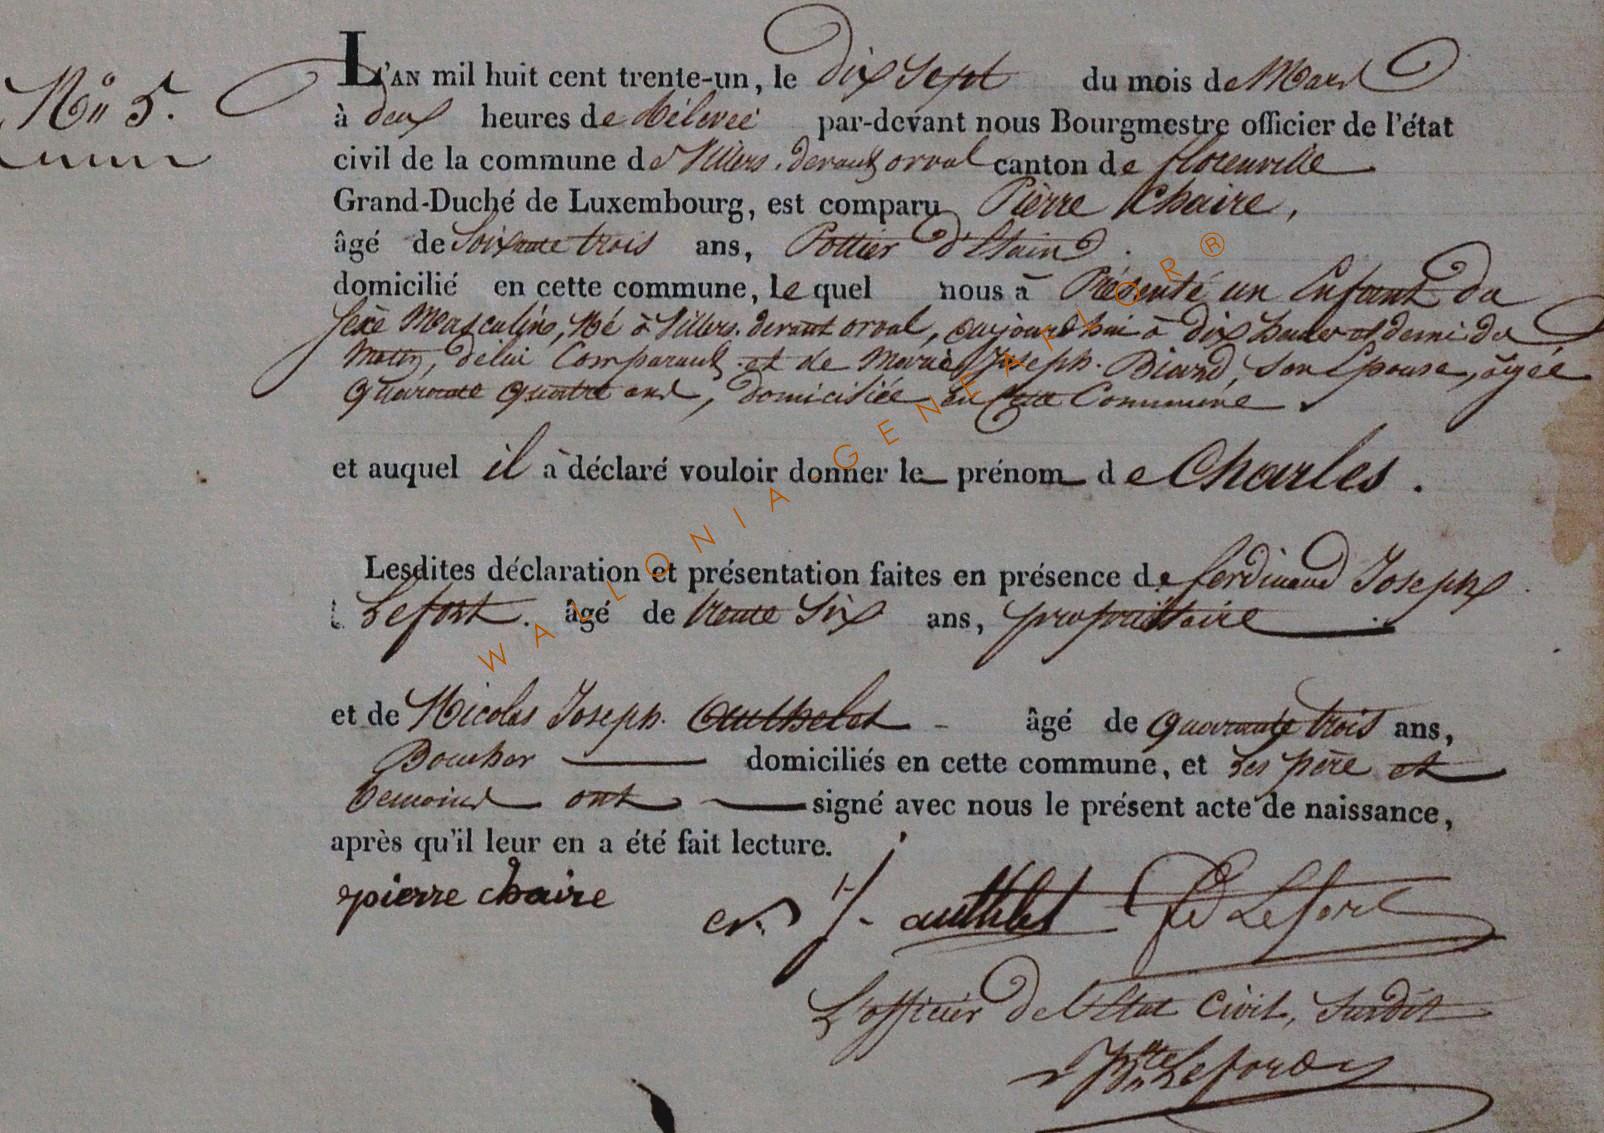 N° 5.
L'AN mil huit cent trente-un, le dix Sept du mois de Mars
à deux heures de Rélevée par-devant nous Bourgmestre officier de l'état
civil de la commune de Villers. devant orval canton de florenville
Grand-Duché de Luxembourg, est comparu Pierre Chaire,
âgé de Soixante trois ans, Pottier d'Etain
domicilié en cette commune, le quel nous à Présenté un Enfant du
Sexe Masculin, Né à Villers. devant orval, aujourdhui à dix heures et demi du
Matin, de lui Comparant et de Marie Joseph. Biard, son Epouse, agée
Quarante quatre ans, domiciliée en cette Commune.
et auquel il à déclaré vouloir donner le prénom de Charles.
Lesdites déclaration et présentation faites en présence de ferdinand Joseph
Lefort. âgé de trente Six ans, propriétaire
et de Nicolas Joseph. Authelet - âgé de Quarante trois ans,
Boucher domiciliés en cette commune, et les père et
temoins ont signé avec nous le présent acte de naissance,
après qu'il leur en a été fait lecture.
pierre chaire
n. J. authelet fd Lefort
L'officier de l'Etat Civil, Susdit
Lefort
WALLONIA GENEA FOR ®